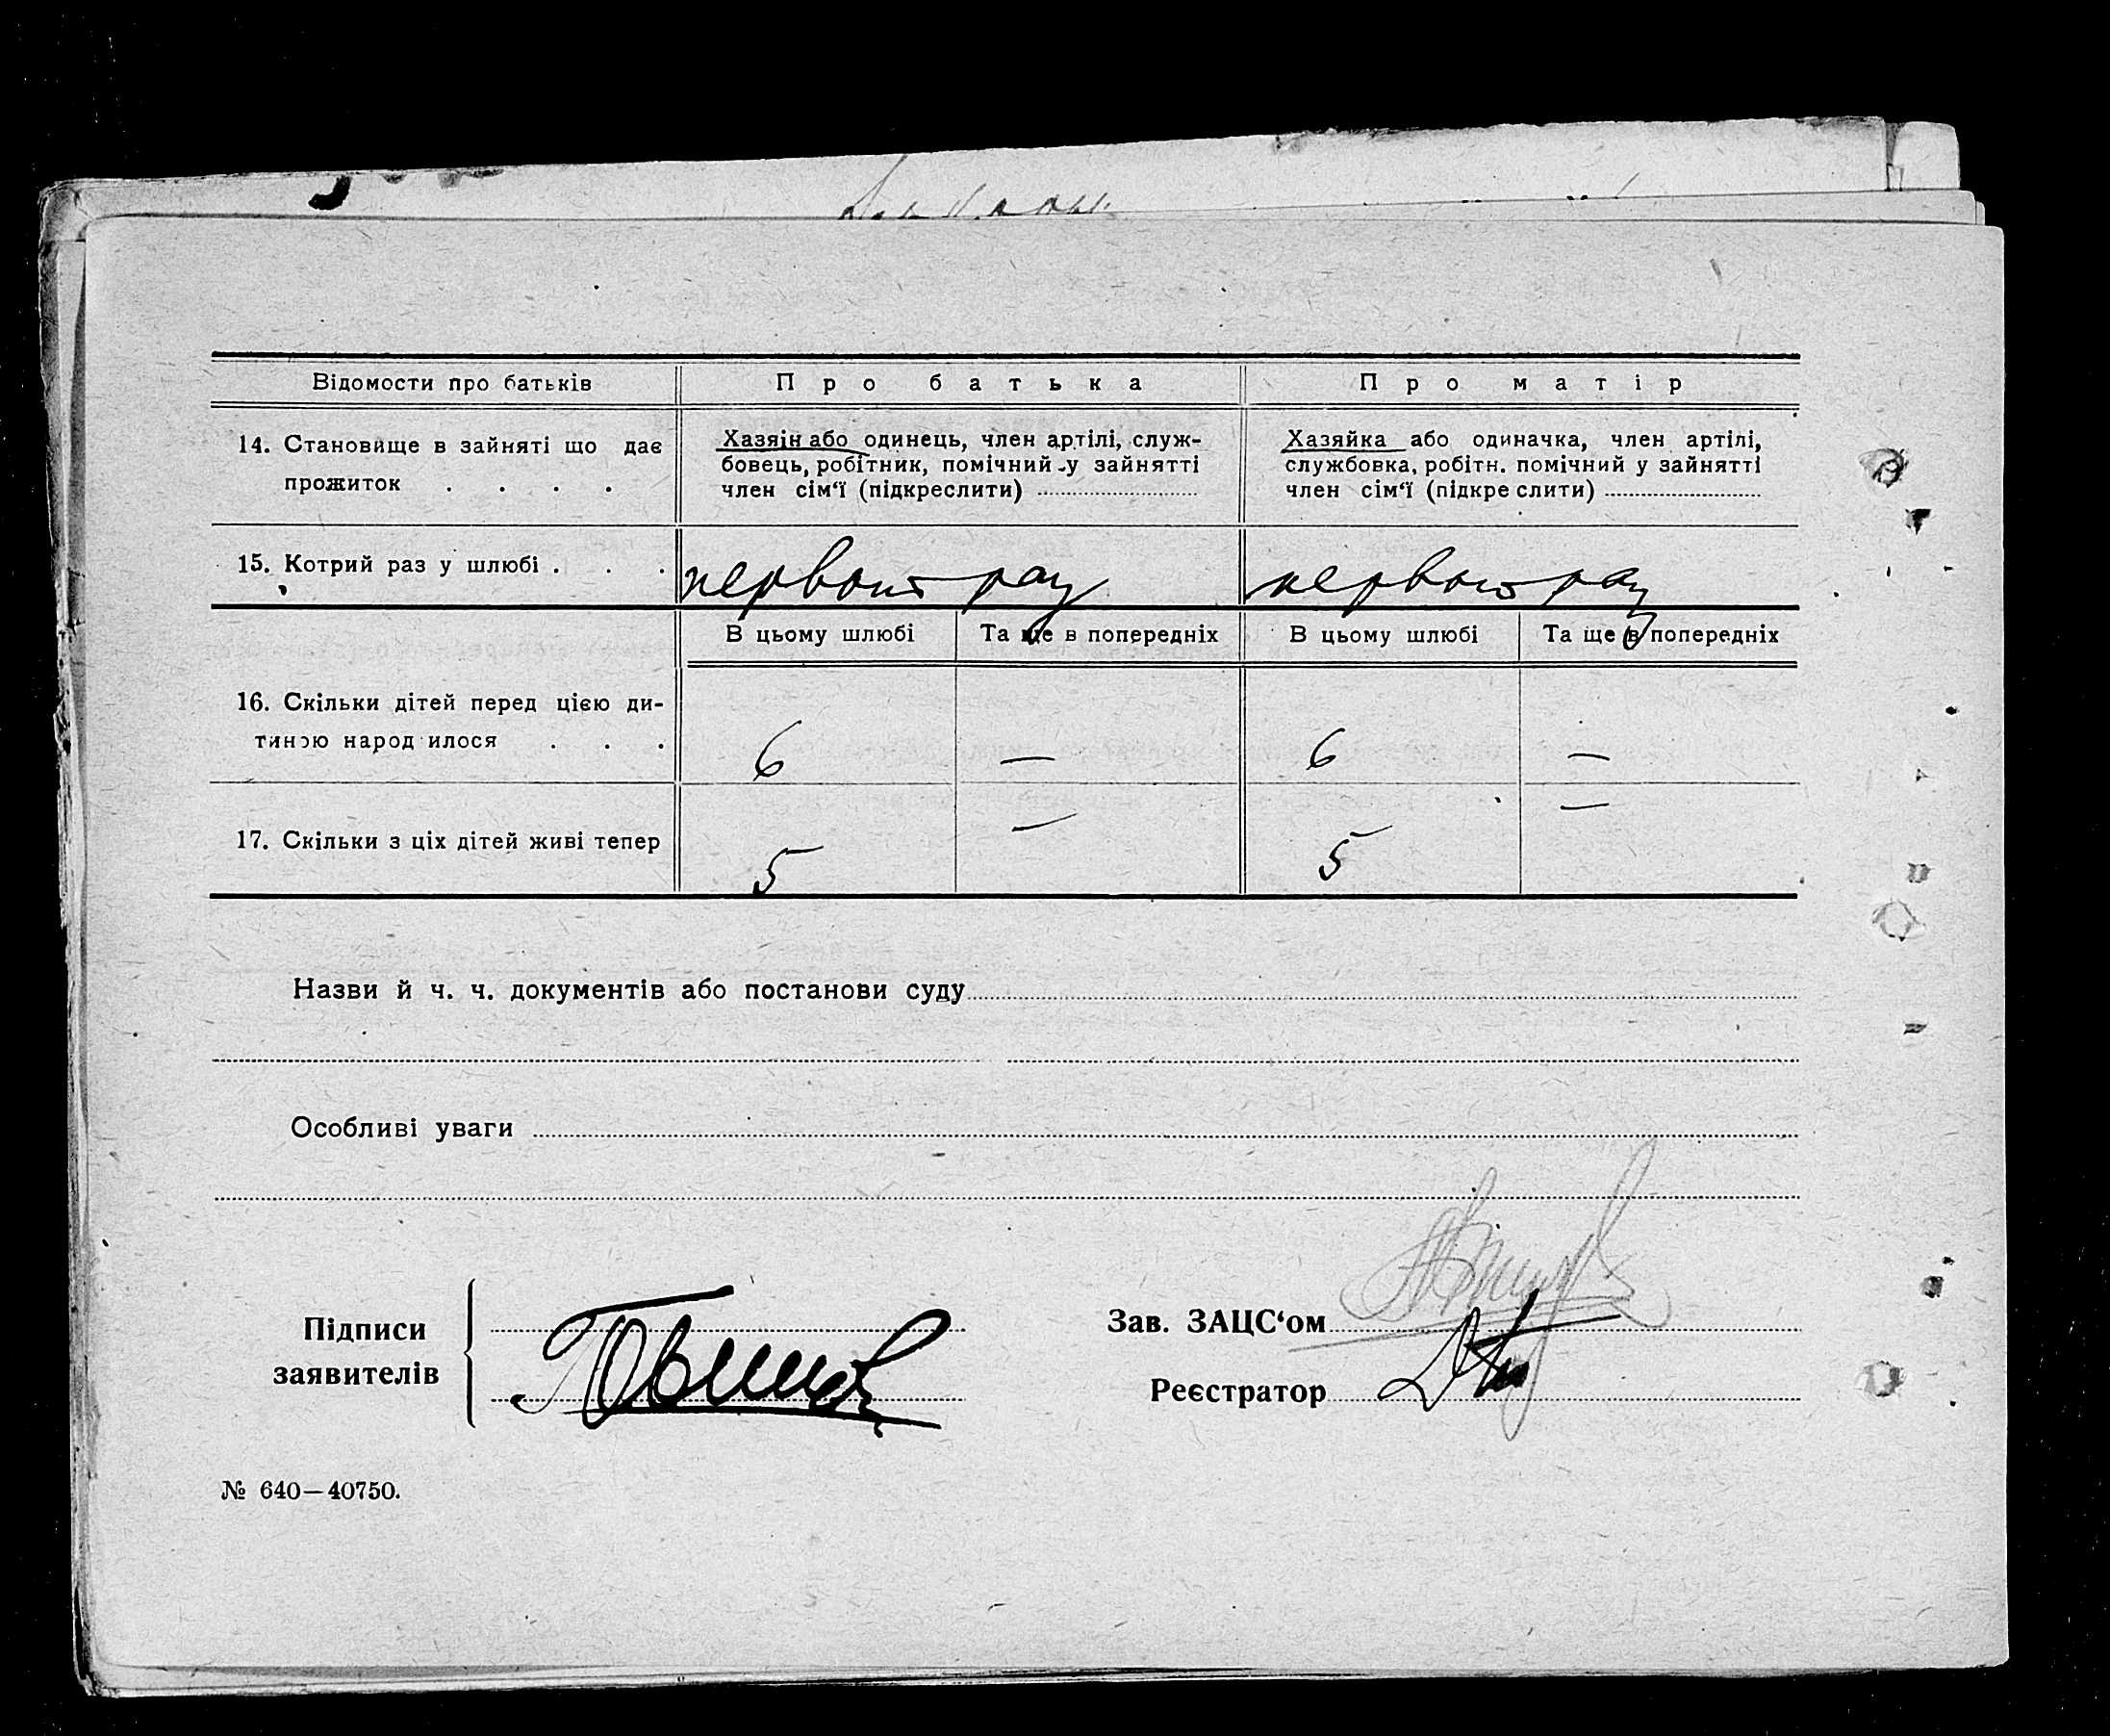 Відомости про батьків
Про батька
Про матір
14. Становище в зайняті що дає
прожиток . . . .
Хазяїн або одинець, член артілі, служ-
бовець, робітник, помічний у зайнятті
член сім‘ї (підкреслити)
Хазяйка або одиначка, член артілі,
службовка, робітн. помічний у зайнятті
член сім‘ї (підкреслити)
15. Котрий раз у шлюбі . . .
первый раз
первый раз
В цьому шлюбі
Та ще в попередніх
В цьому шлюбі
Та ще в попередніх
16. Скільки дітей перед цією ди-
тиною народилося . . .
6
—
6
—
17. Скільки з ціх дітей живі тепер
5
—
5
—
Назви й ч. ч. документів або постанови суду
Особливі уваги
Підписи
заявителів
Зав. ЗАЦС‘ом
Реєстратор
№ 640—40750.